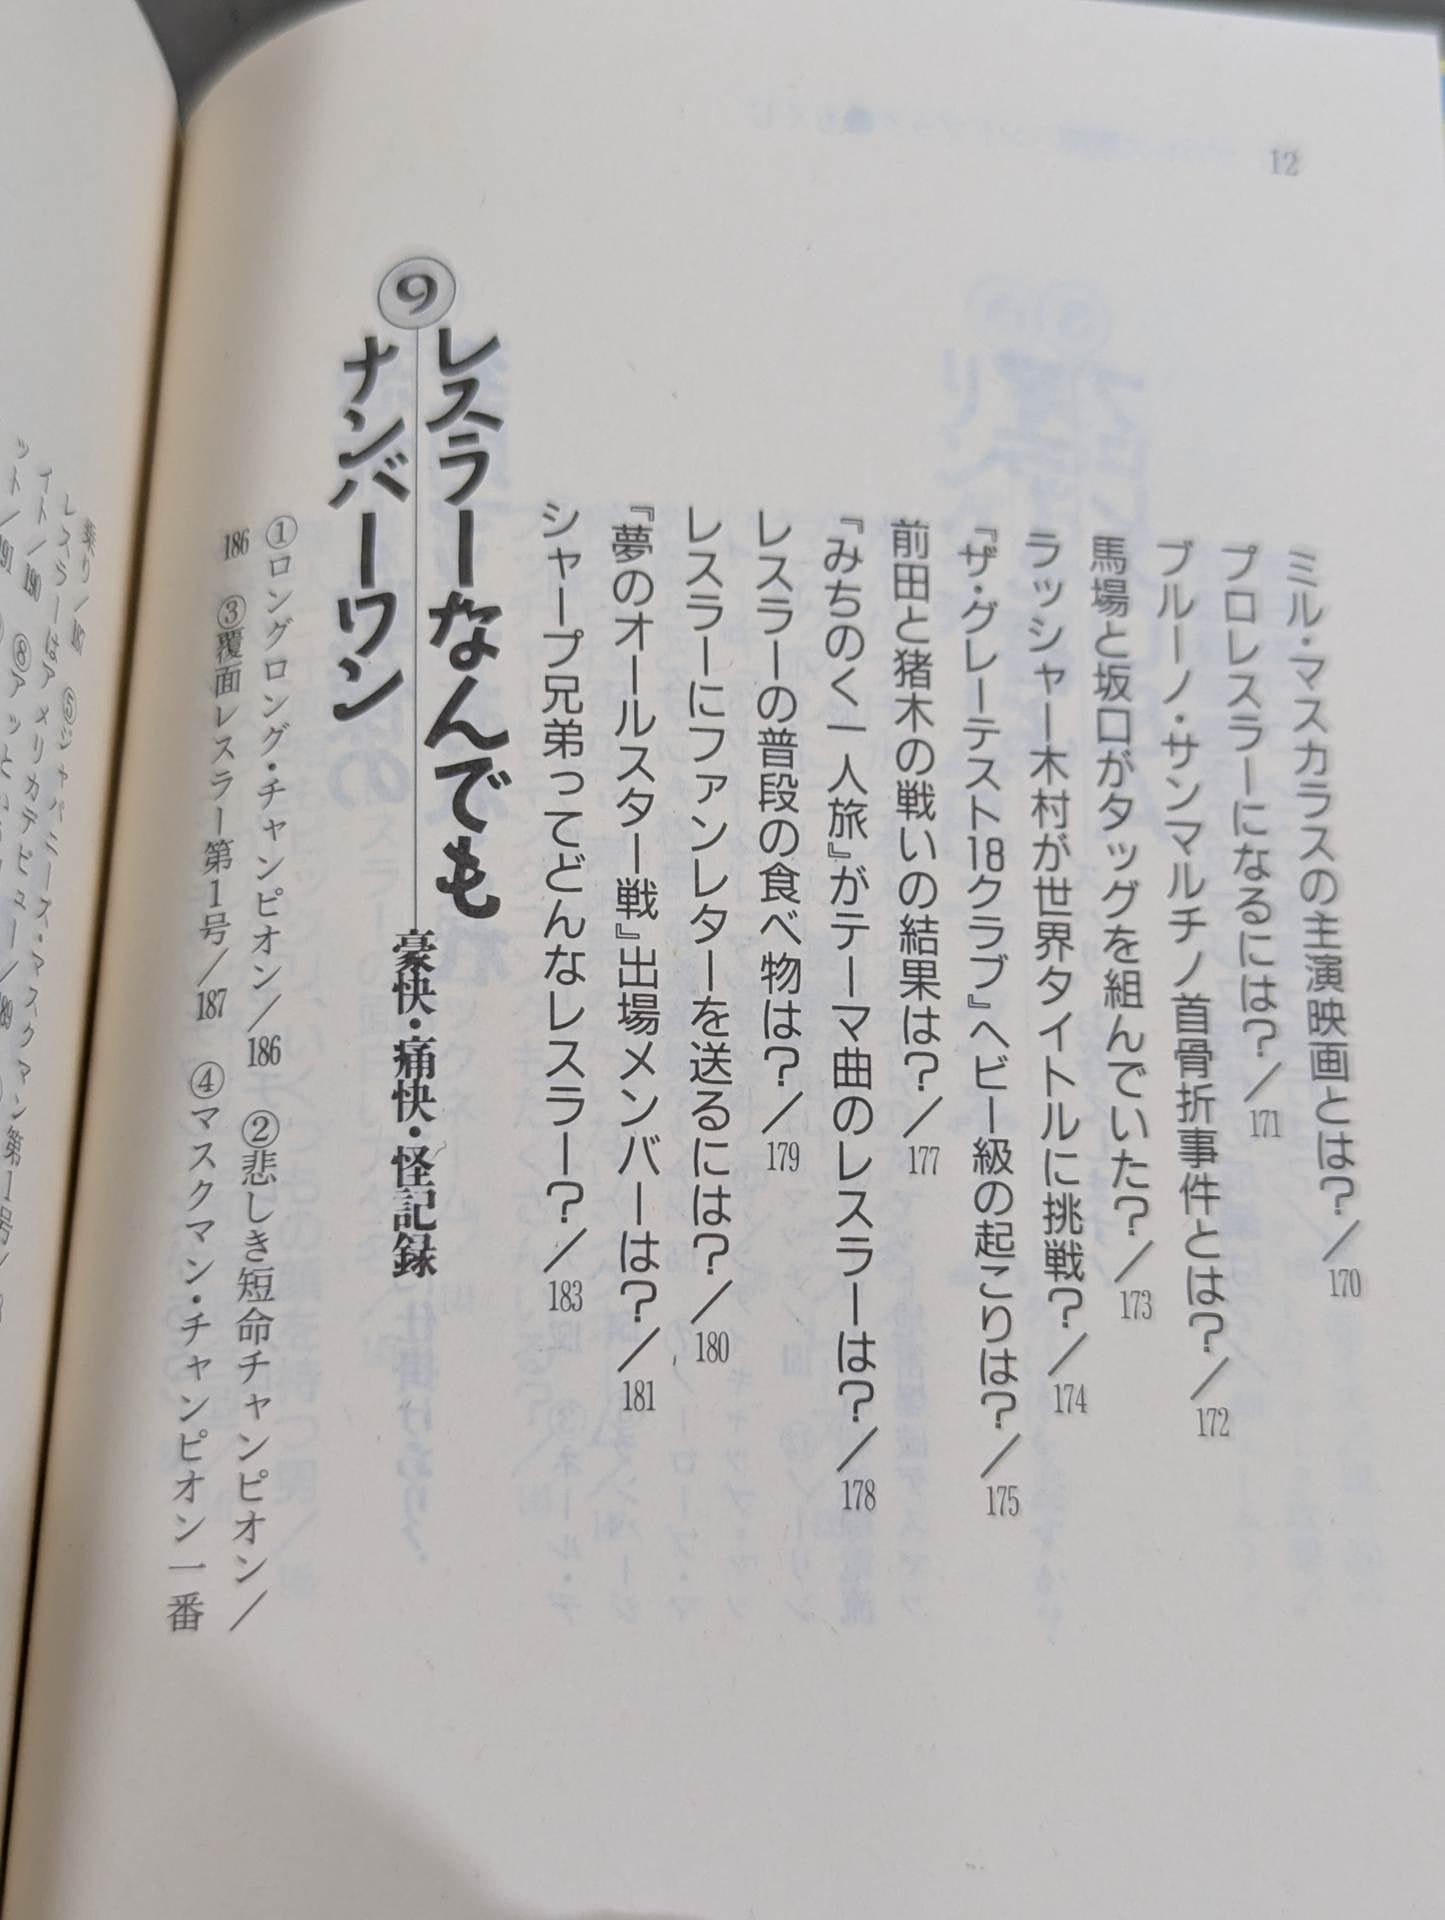 12
ミル・マスカラスの主演映画とは？／170
プロレスラーになるには？／171
ブルーノ・サンマルチノ首骨折事件とは？／172
馬場と坂口がタッグを組んでいた？／173
ラッシャー木村が世界タイトルに挑戦？／174
『ザ・グレーテスト18クラブ』ヘビー級の起こりは？／175
前田と猪木の戦いの結果は？／177
『みちのく一人旅』がテーマ曲のレスラーは？／178
レスラーの普段の食べ物は？／179
レスラーにファンレターを送るには？／180
『夢のオールスター戦』出場メンバーは？／181
シャープ兄弟ってどんなレスラー？／183
⑨レスラーなんでも
ナンバーワン
豪快・痛快・怪記録
①ロングロング・チャンピオン／186　②悲しき短命チャンピオン／
186　③覆面レスラー第1号／187　④マスクマン・チャンピオン一番
乗り／187　⑤ジャパニーズ・マスクマン第1号／
レスラーはアメリカデビュー／189
イト／190　⑧アッという
ット／191